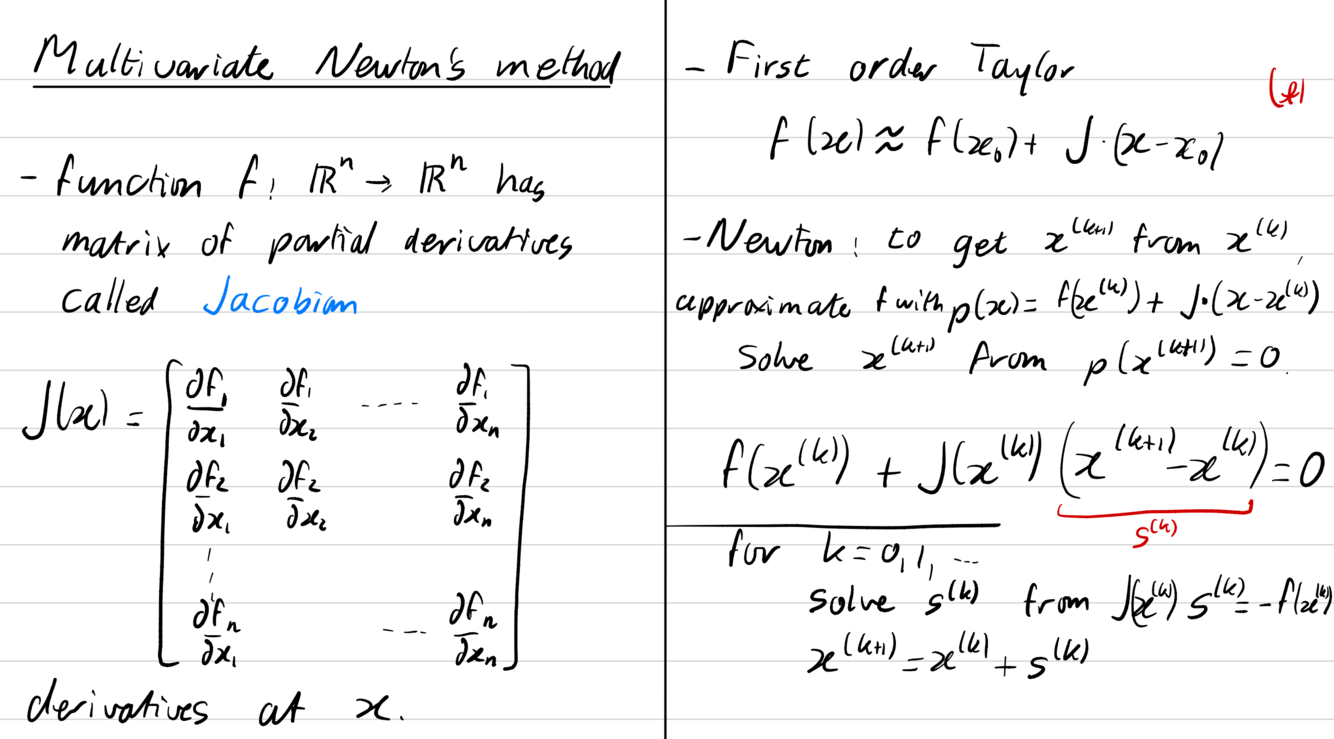 Multivariate Newton's method
- function f: ℝⁿ → ℝⁿ has
matrix of partial derivatives
called Jacobian
J(x) = [ ∂f₁/∂x₁ ∂f₁/∂x₂ ---- ∂f₁/∂xₙ
∂f₂/∂x₁ ∂f₂/∂x₂ ∂f₂/∂xₙ
⋮
∂fₙ/∂x₁ --- ∂fₙ/∂xₙ ]
derivatives at x.
- First order Taylor
f(x) ≈ f(x₀) + J·(x-x₀)
- Newton: to get x^(k+1) from x^(k),
approximate f with p(x) = f(x^(k)) + J·(x-x^(k))
Solve x^(k+1) from p(x^(k+1)) = 0.
f(x^(k)) + J(x^(k)) (x^(k+1) - x^(k)) = 0
s^(k)
for k = 0, 1, ...
solve s^(k) from J(x^(k)) s^(k) = -f(x^(k))
x^(k+1) = x^(k) + s^(k)